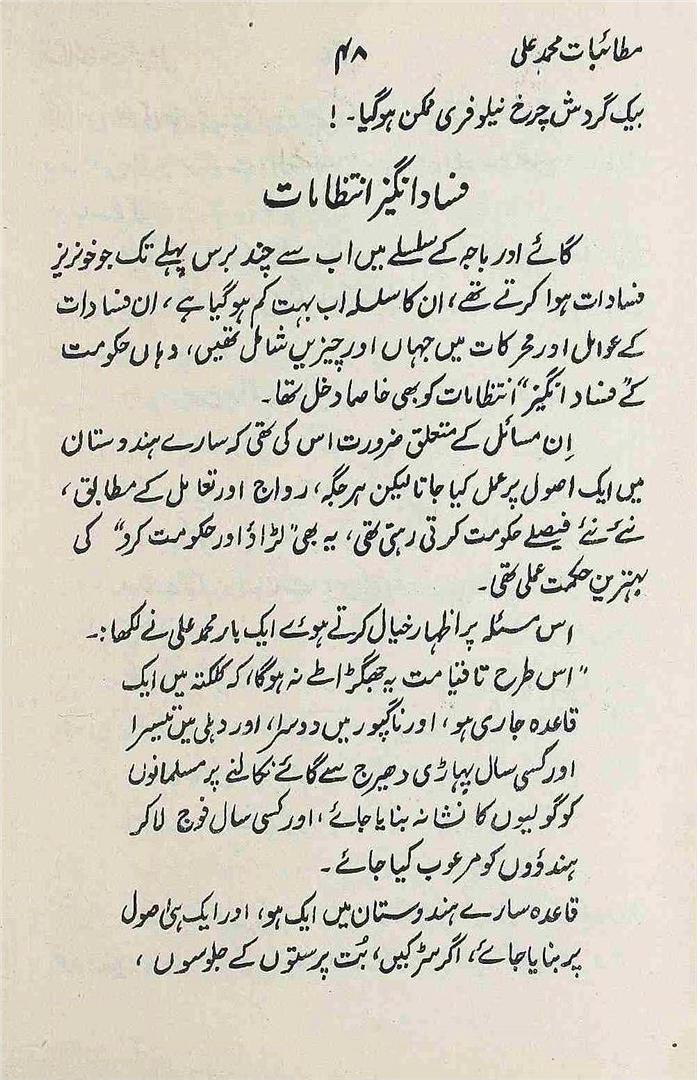 مطائبات محمد علی
۴۸
بیک گردش چرخ نیلوفری ممکن ہوگیا۔ !
فساد انگیز انتظامات
گائے اور باجہ کے سلسلے میں اب سے چند برس پہلے تک جو خونریز
فسادات ہوا کرتے تھے، ان کا سلسلہ اب بہت کم ہوگیا ہے، ان فسادات
کے عوامل اور محرکات میں جہاں اور چیزیں شامل تھیں، وہاں حکومت
کے "فساد انگیز" انتظامات کو بھی خاصا دخل تھا۔
اِن مسائل کے متعلق ضرورت اس کی تھی کہ سارے ہندوستان
میں ایک اصول پر عمل کیا جاتا لیکن ہر جگہ، رواج اور تعامل کے مطابق،
نئے نئے فیصلے حکومت کرتی رہتی تھی، یہ بھی "لڑاؤ اور حکومت کرو" کی
بہترین حکمت عملی تھی۔
اس مسئلہ پر اظہار خیال کرتے ہوئے ایک بار محمد علی نے لکھا:۔
"اس طرح تا قیامت یہ جھگڑا طے نہ ہوگا، کہ کلکتہ میں ایک
قاعدہ جاری ہو، اور ناگپور میں دوسرا، اور دہلی میں تیسرا
اور کسی سال پہاڑی دھیرج سے گائے نکالنے پر مسلمانوں
کو گولیوں کا نشانہ بنایا جائے، اور کسی سال فوج لاکر
ہندوؤں کو مرعوب کیا جائے۔
قاعدہ سارے ہندوستان میں ایک ہو، اور ایک ہی اصول
پر بنایا جائے، اگر سڑکیں، بُت پرستوں کے جلوسوں،